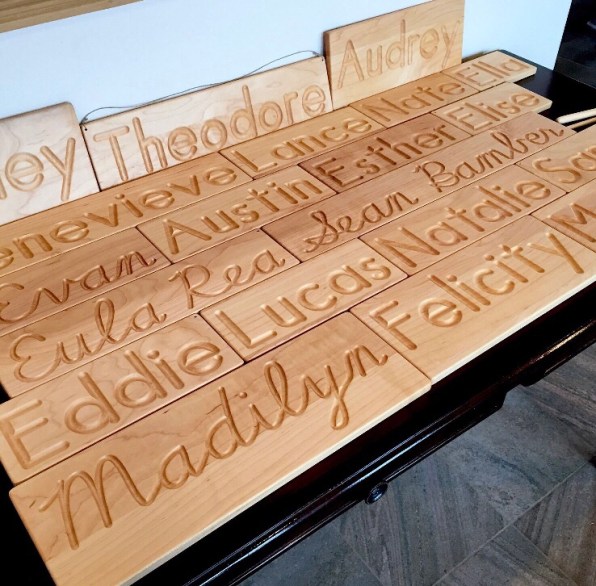 Audrey
Theodore
enevieve
Lance
Nate
Ella
Austin
Esther
Elise
Evan
Sean Bamber
Eula Rea
Lucas
Natalie
Eddie
Felicity
Madilyn